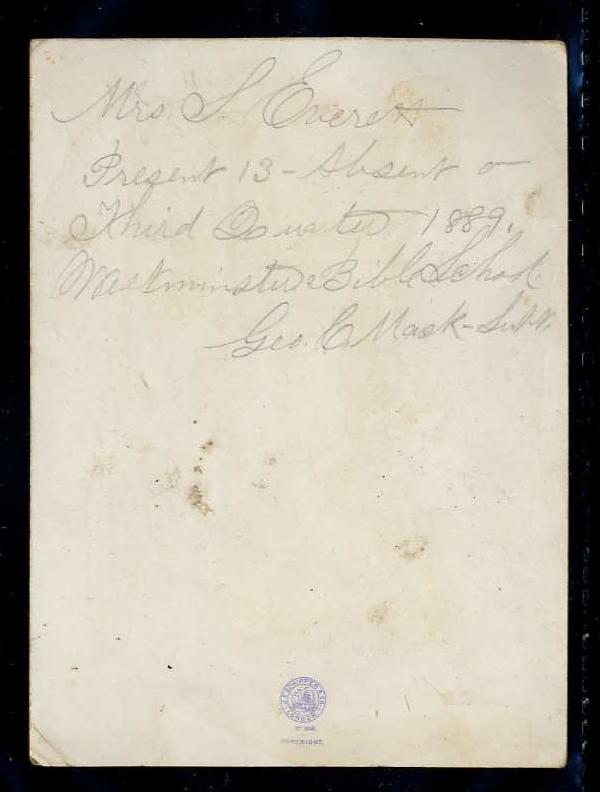 Mrs. S. Everett
Present 13 - Absent 0
Third Quarter 1889.
Westminster Bible School
Geo. C. Mack - Supt.
LONDON
COPYRIGHT